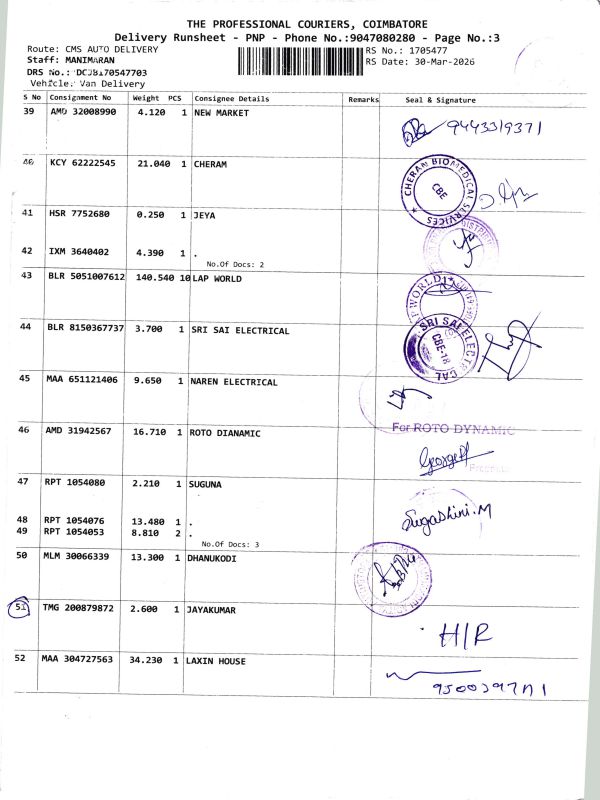 THE PROFESSIONAL COURIERS, COIMBATORE
Delivery Runsheet - PNP - Phone No.:9047080280 - Page No.:3
Route: CMS AUTO DELIVERY
RS No.: 1705477
Staff: MANIMARAN
RS Date: 30-Mar-2026
DRS No.: DCJB170547703
Vehicle: Van Delivery
S No Consignment No Weight PCS Consignee Details Remarks Seal & Signature
39 AMD 32008990 4.120 1 NEW MARKET
9443319371
40 KCY 62222545 21.040 1 CHERAM
CHERAN BIOMEDICAL SERVICES
CBE
41 HSR 7752680 0.250 1 JEYA
42 IXM 3640402 4.390 1 .
No.Of Docs: 2
43 BLR 5051007612 140.540 10 LAP WORLD
P WORLD
44 BLR 8150367737 3.700 1 SRI SAI ELECTRICAL
SRI SAI ELECTRICAL
CBE-18
45 MAA 651121406 9.650 1 NAREN ELECTRICAL
46 AMD 31942567 16.710 1 ROTO DIANAMIC
For ROTO DYNAMIC
47 RPT 1054080 2.210 1 SUGUNA
Sugashini.M
48 RPT 1054076 13.480 1 .
49 RPT 1054053 8.810 2 .
No.Of Docs: 3
50 MLM 30066339 13.300 1 DHANUKODI
51 TMG 200879872 2.600 1 JAYAKUMAR
H/R
52 MAA 304727563 34.230 1 LAXIN HOUSE